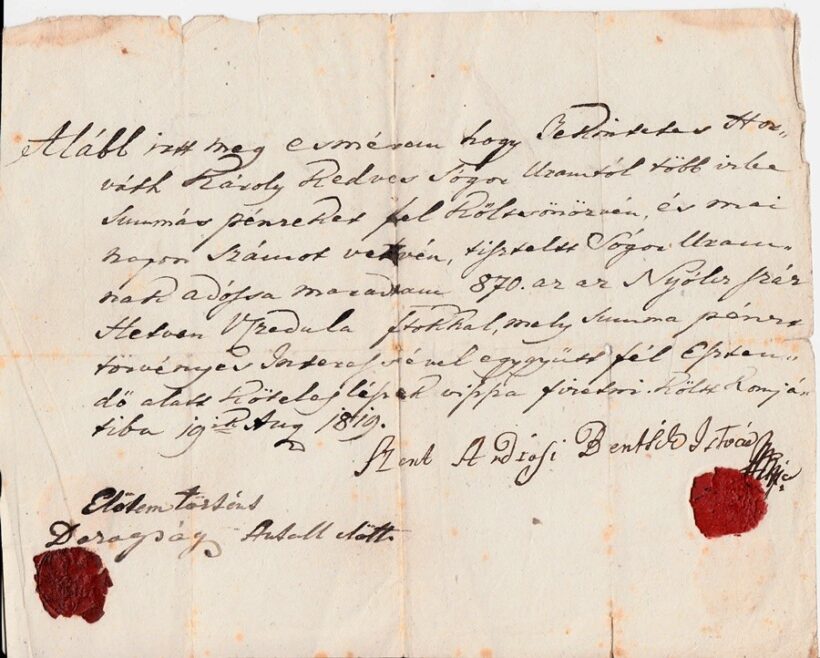 Alább irtt meg esmérem hogy Tekintetes Hor„
váth Károly Kedves Sógor Uramtól több izbe
Summás pénzeket fel költsönözvén, és mai
napon számot vetvén, tiszteltt Sógor Uram„
nak adóssa maradtam 870. az az Nyóltz száz
Hetven Czedula ftokkal, mely Summa pénzt
törvényes Interessével eggyütt fél Eszten„
dő alatt Köteles lészek vissza fizetni. Költ Komjá„
tiba 19ik Aug 1819.
Szent Andrási Bentsik István
Előtem történt
Antall előtt.